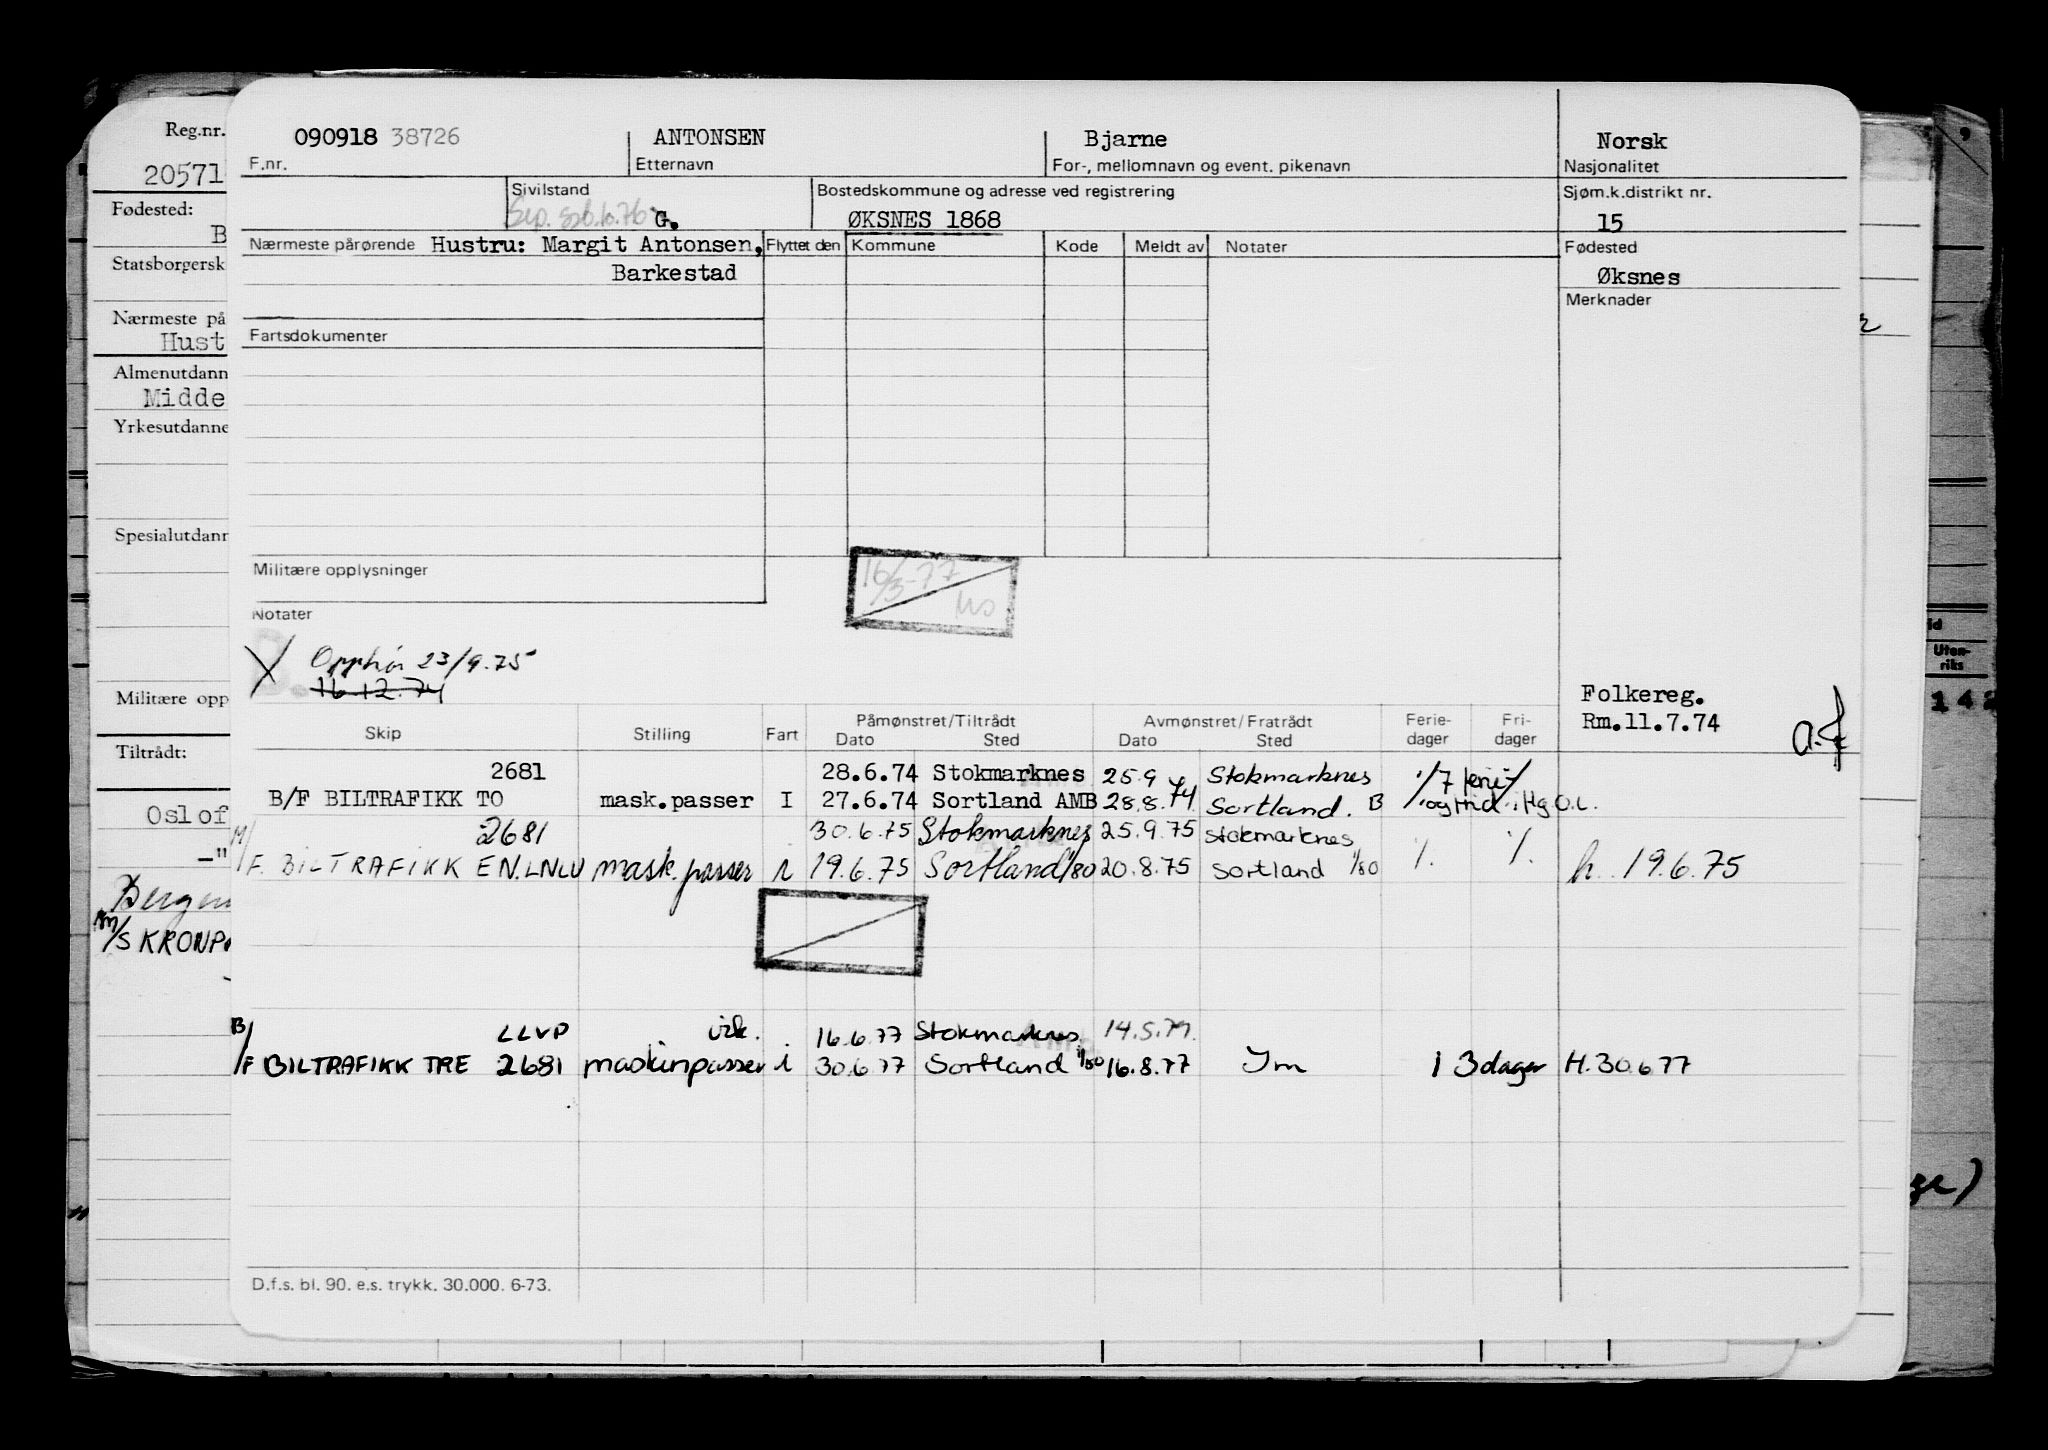 Reg.nr.
20571
Fødested:
B
Statsborgersk
Nærmeste på
Hust
Almenutdann
Midde
Yrkesutdanne
Spesialutdann
Militære opp
Tiltrådt:
Oslof
—"
Bergen
M/S KRONP
090918 38726
F.nr.
ANTONSEN
Etternavn
Bjarne
For-, mellomnavn og event. pikenavn
Norsk
Nasjonalitet
Sivilstand
Sep. 76 G.
Bostedskommune og adresse ved registrering
ØKSNES 1868
Sjøm.k.distrikt nr.
15
Nærmeste pårørende Hustru: Margit Antonsen,
Barkestad
Flyttet den Kommune Kode Meldt av Notater
Fødested
Øksnes
Merknader
Fartsdokumenter
Militære opplysninger
16/3-77
Notater
X Opphør 23/9.75
16.12.74
Folkereg.
Rm.11.7.74
Skip Stilling Fart Påmønstret/Tiltrådt Avmønstret/Fratrådt Ferie- Fri-
Dato Sted Dato Sted dager dager
2681 28.6.74 Stokmarknes 25.9 Stokmarknes
B/F BILTRAFIKK TO mask.passer I 27.6.74 Sortland AMB 28.8.74 Sortland. B
2681 30.6.75 Stokmarknes 25.9.75 Stokmarknes
M/F. BILTRAFIKK EN.LNLU mask.passer i 19.6.75 Sortland 1/80 20.8.75 Sortland 1/80 h. 19.6.75
LLVP 16.6.77 Stokmarknes
B/F BILTRAFIKK TRE 2681 maskinpasser i 30.6.77 Sortland 1/80 16.8.77 Im 13 dager H.30.6.77
D.f.s. bl. 90. e.s. trykk. 30.000. 6-73.
id
Uten-
riks
142
ge)